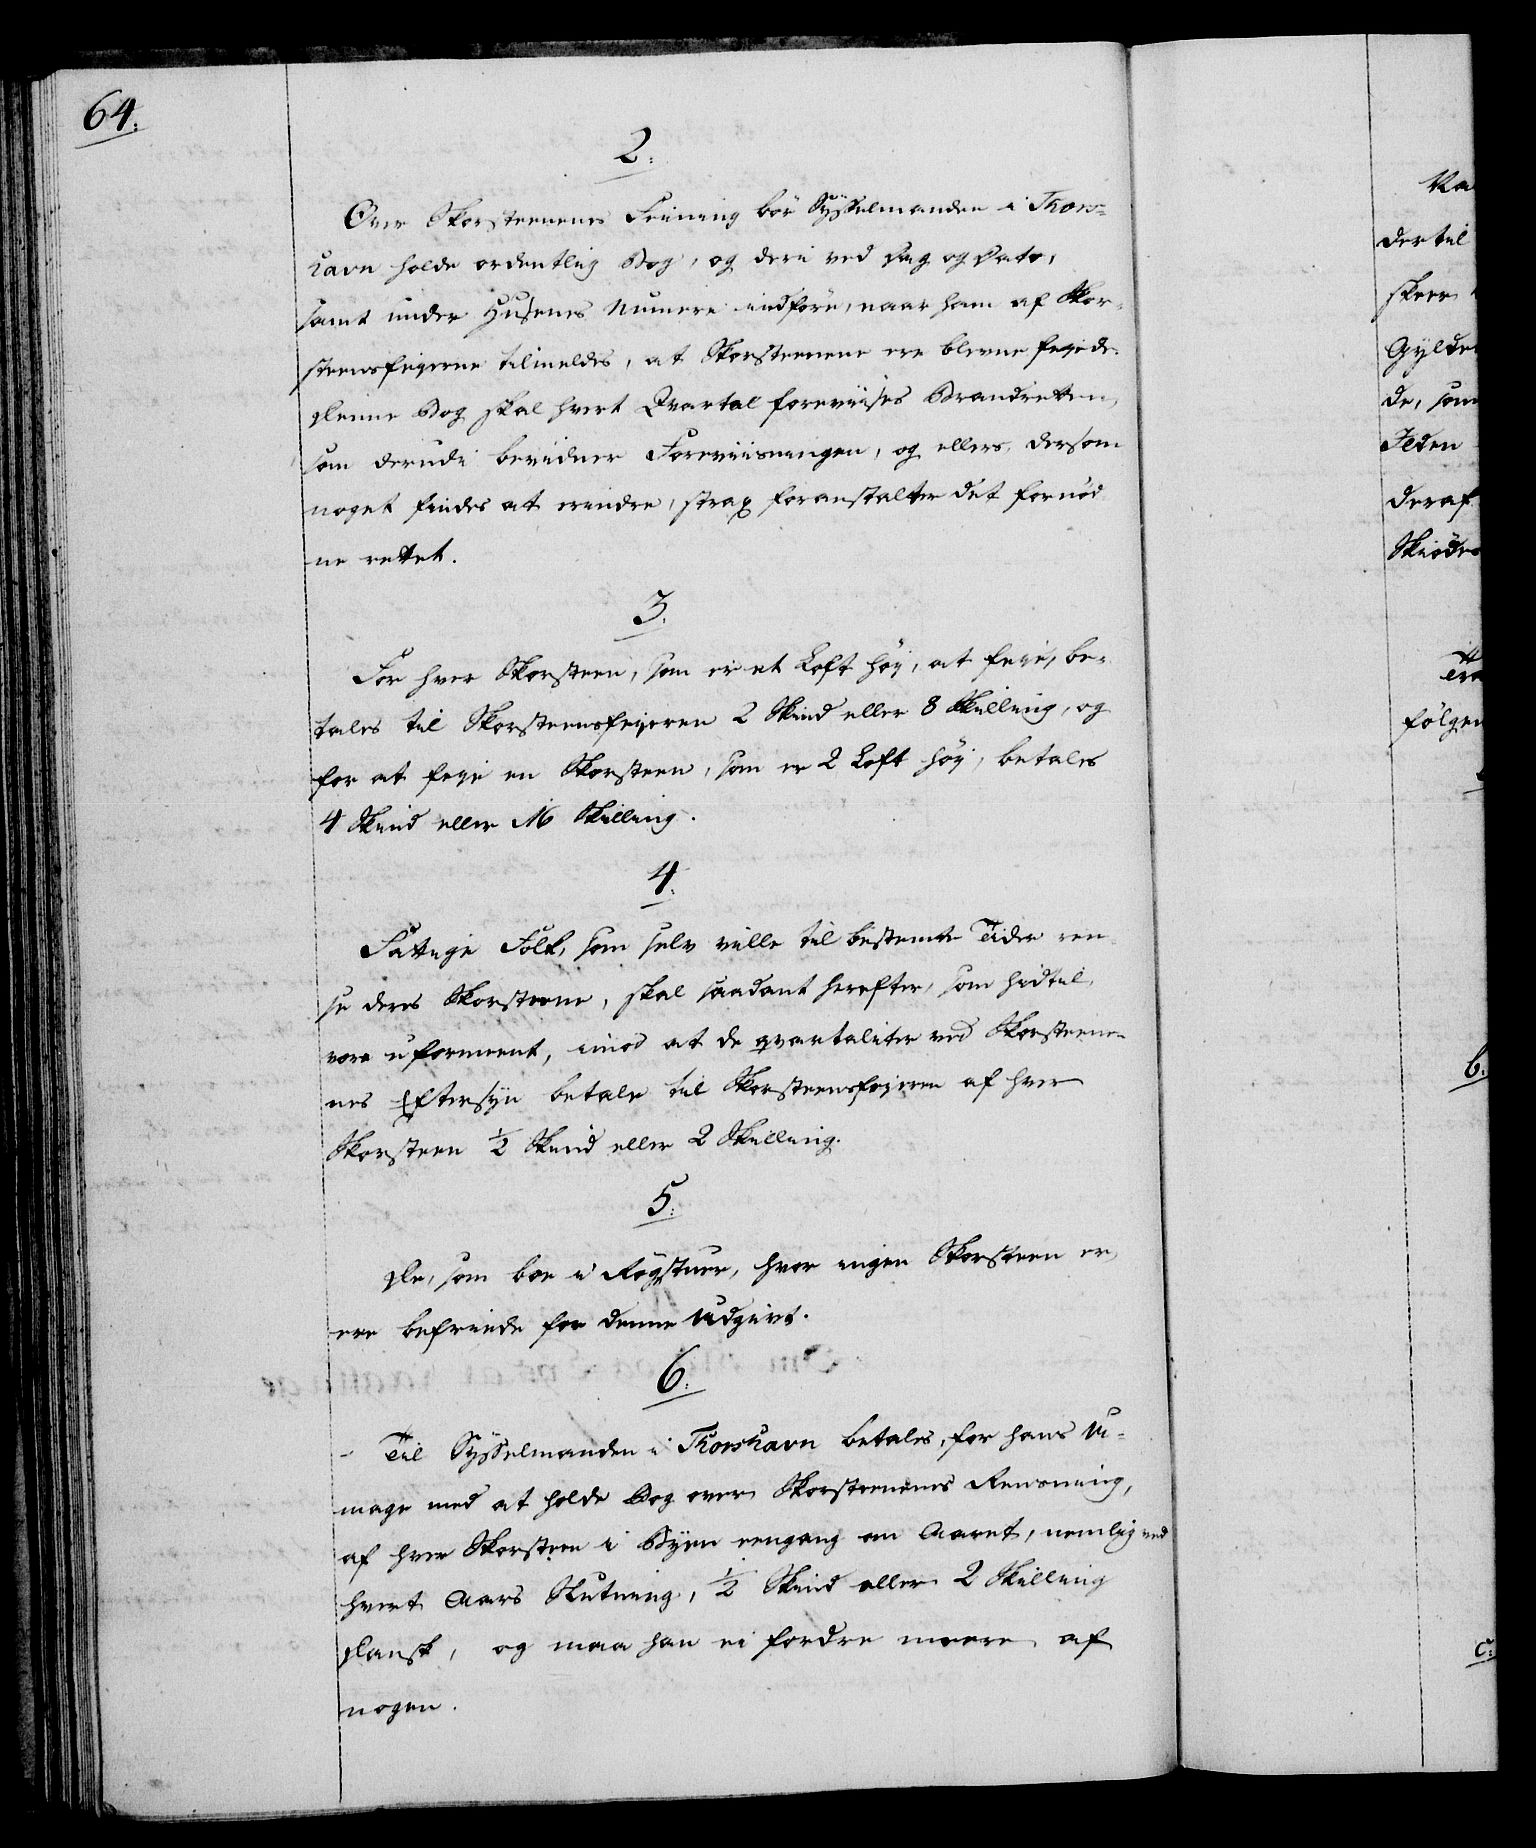 64.
2.
Over Skorsteenenes Feiening bör Sysselmanden i Thors-
havn holde ordentlig Bog, og deri ved Dag og Dato,
samt under Husenes Numere indföre, naar ham af Skor-
steensfeyerne tilmeldes, at Skorsteenene ere blevne feyede.
Denne Bog skal hvert Qvartal foreviises Brandretten,
som derudi bevidner Foreviisningen, og ellers, dersom
noget findes at erindre, strax foranstalter det fornöd-
ne rettet.
3.
For hver Skorsteen, som er et Loft höy, at feye, be-
tales til Skorsteensfeyeren 2 Skind eller 8 Skilling, og
for at feye en Skorsteen, som er 2 Loft höy, betales
4 Skind eller 16 Skilling.
4.
Fattige Folk, som selv ville til bestemte Tider ren-
se deres Skorsteene, skal saadant herefter, som hidtil,
være uforment, imod at de qvartaliter ved Skorsteene-
nes Eftersyn betale til Skorsteensfeyeren af hver
Skorsteen ½ Skind eller 2 Skilling.
5.
De, som boe i Rögstuer, hvor ingen Skorsteen er,
ere befriede for denne Udgivt.
6.
Til Sysselmanden i Thorshavn betales, for hans U-
mage med at holde Bog over Skorsteenenes Rensning,
af hver Skorsteen i Byen eengang om Aaret, nemlig ved
hvert Aars Slutning, ½ Skind eller 2 Skilling
Dansk, og maa han ei fordre meere af
nogen.
dertil
skeer
Gylde
de, som
Ilden
deraf
Skiöde
fölgen
b.
c.